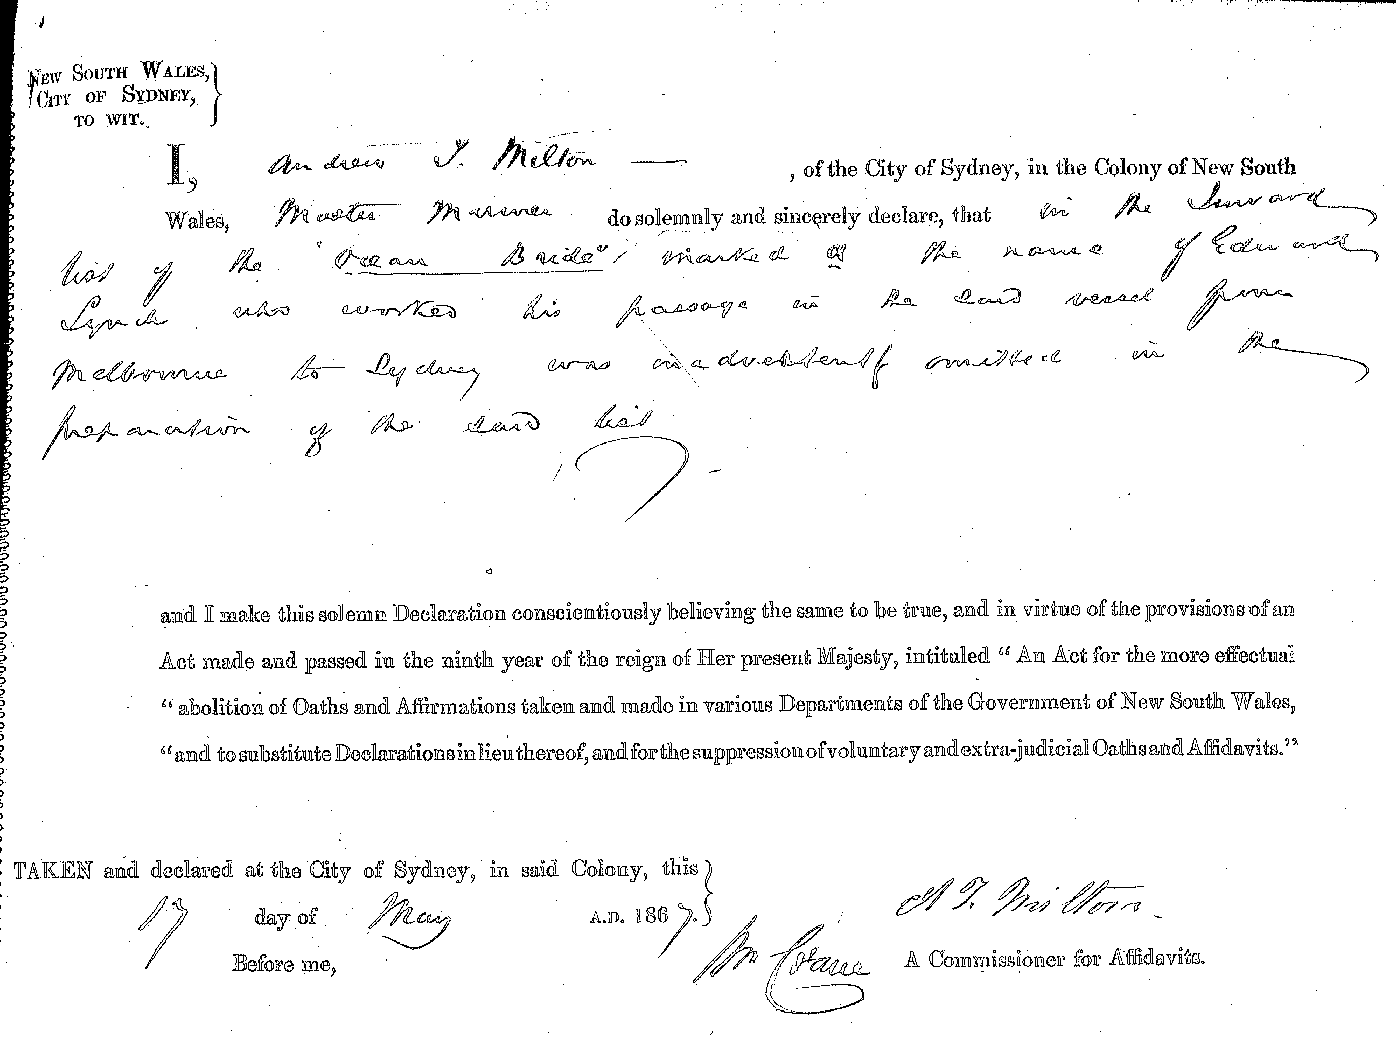 NEW SOUTH WALES,
CITY OF SYDNEY,
TO WIT.
I, Andrew T. Milton , of the City of Sydney, in the Colony of New South
Wales, Master Mariner do solemnly and sincerely declare, that in the Inward
list of the "Ocean Bride" marked the name of Edward
Lynch who worked his passage in the said vessel from
Melbourne to Sydney was inadvertently omitted in the
preparation of the said list
and I make this solemn Declaration conscientiously believing the same to be true, and in virtue of the provisions of an
Act made and passed in the ninth year of the reign of Her present Majesty, intituled " An Act for the more effectual
" abolition of Oaths and Affirmations taken and made in various Departments of the Government of New South Wales,
"and to substitute Declarations in lieu thereof, and for the suppression of voluntary and extra-judicial Oaths and Affidavits."
TAKEN and declared at the City of Sydney, in said Colony, this
17 day of May A.D. 1867. A T. Milton.
Before me, Wm Crane A Commissioner for Affidavits.